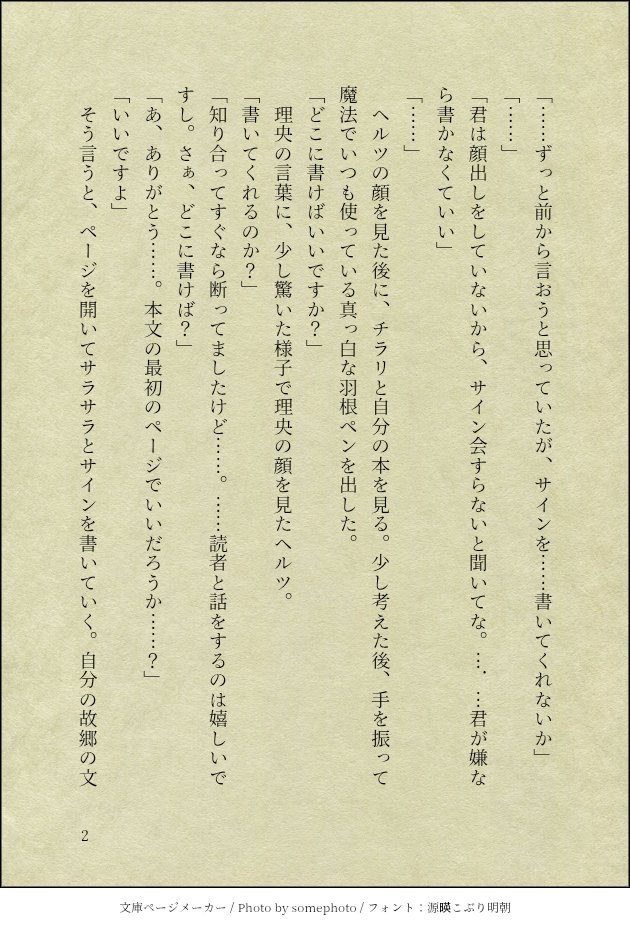 「……ずっと前から言おうと思っていたが、サインを……書いてくれないか」
「……」
「君は顔出しをしていないから、サイン会すらないと聞いてな。…．…君が嫌な
ら書かなくていい」
「……」
　ヘルツの顔を見た後に、チラリと自分の本を見る。少し考えた後、手を振って
魔法でいつも使っている真っ白な羽根ペンを出した。
「どこに書けばいいですか？」
　理央の言葉に、少し驚いた様子で理央の顔を見たヘルツ。
「書いてくれるのか？」
「知り合ってすぐなら断ってましたけど……。……読者と話をするのは嬉しいで
すし。さぁ、どこに書けば？」
「あ、ありがとう……。本文の最初のページでいいだろうか……？」
「いいですよ」
　そう言うと、ページを開いてサラサラとサインを書いていく。自分の故郷の文
2
文庫ページメーカー / Photo by somephoto / フォント：源暎こぶり明朝